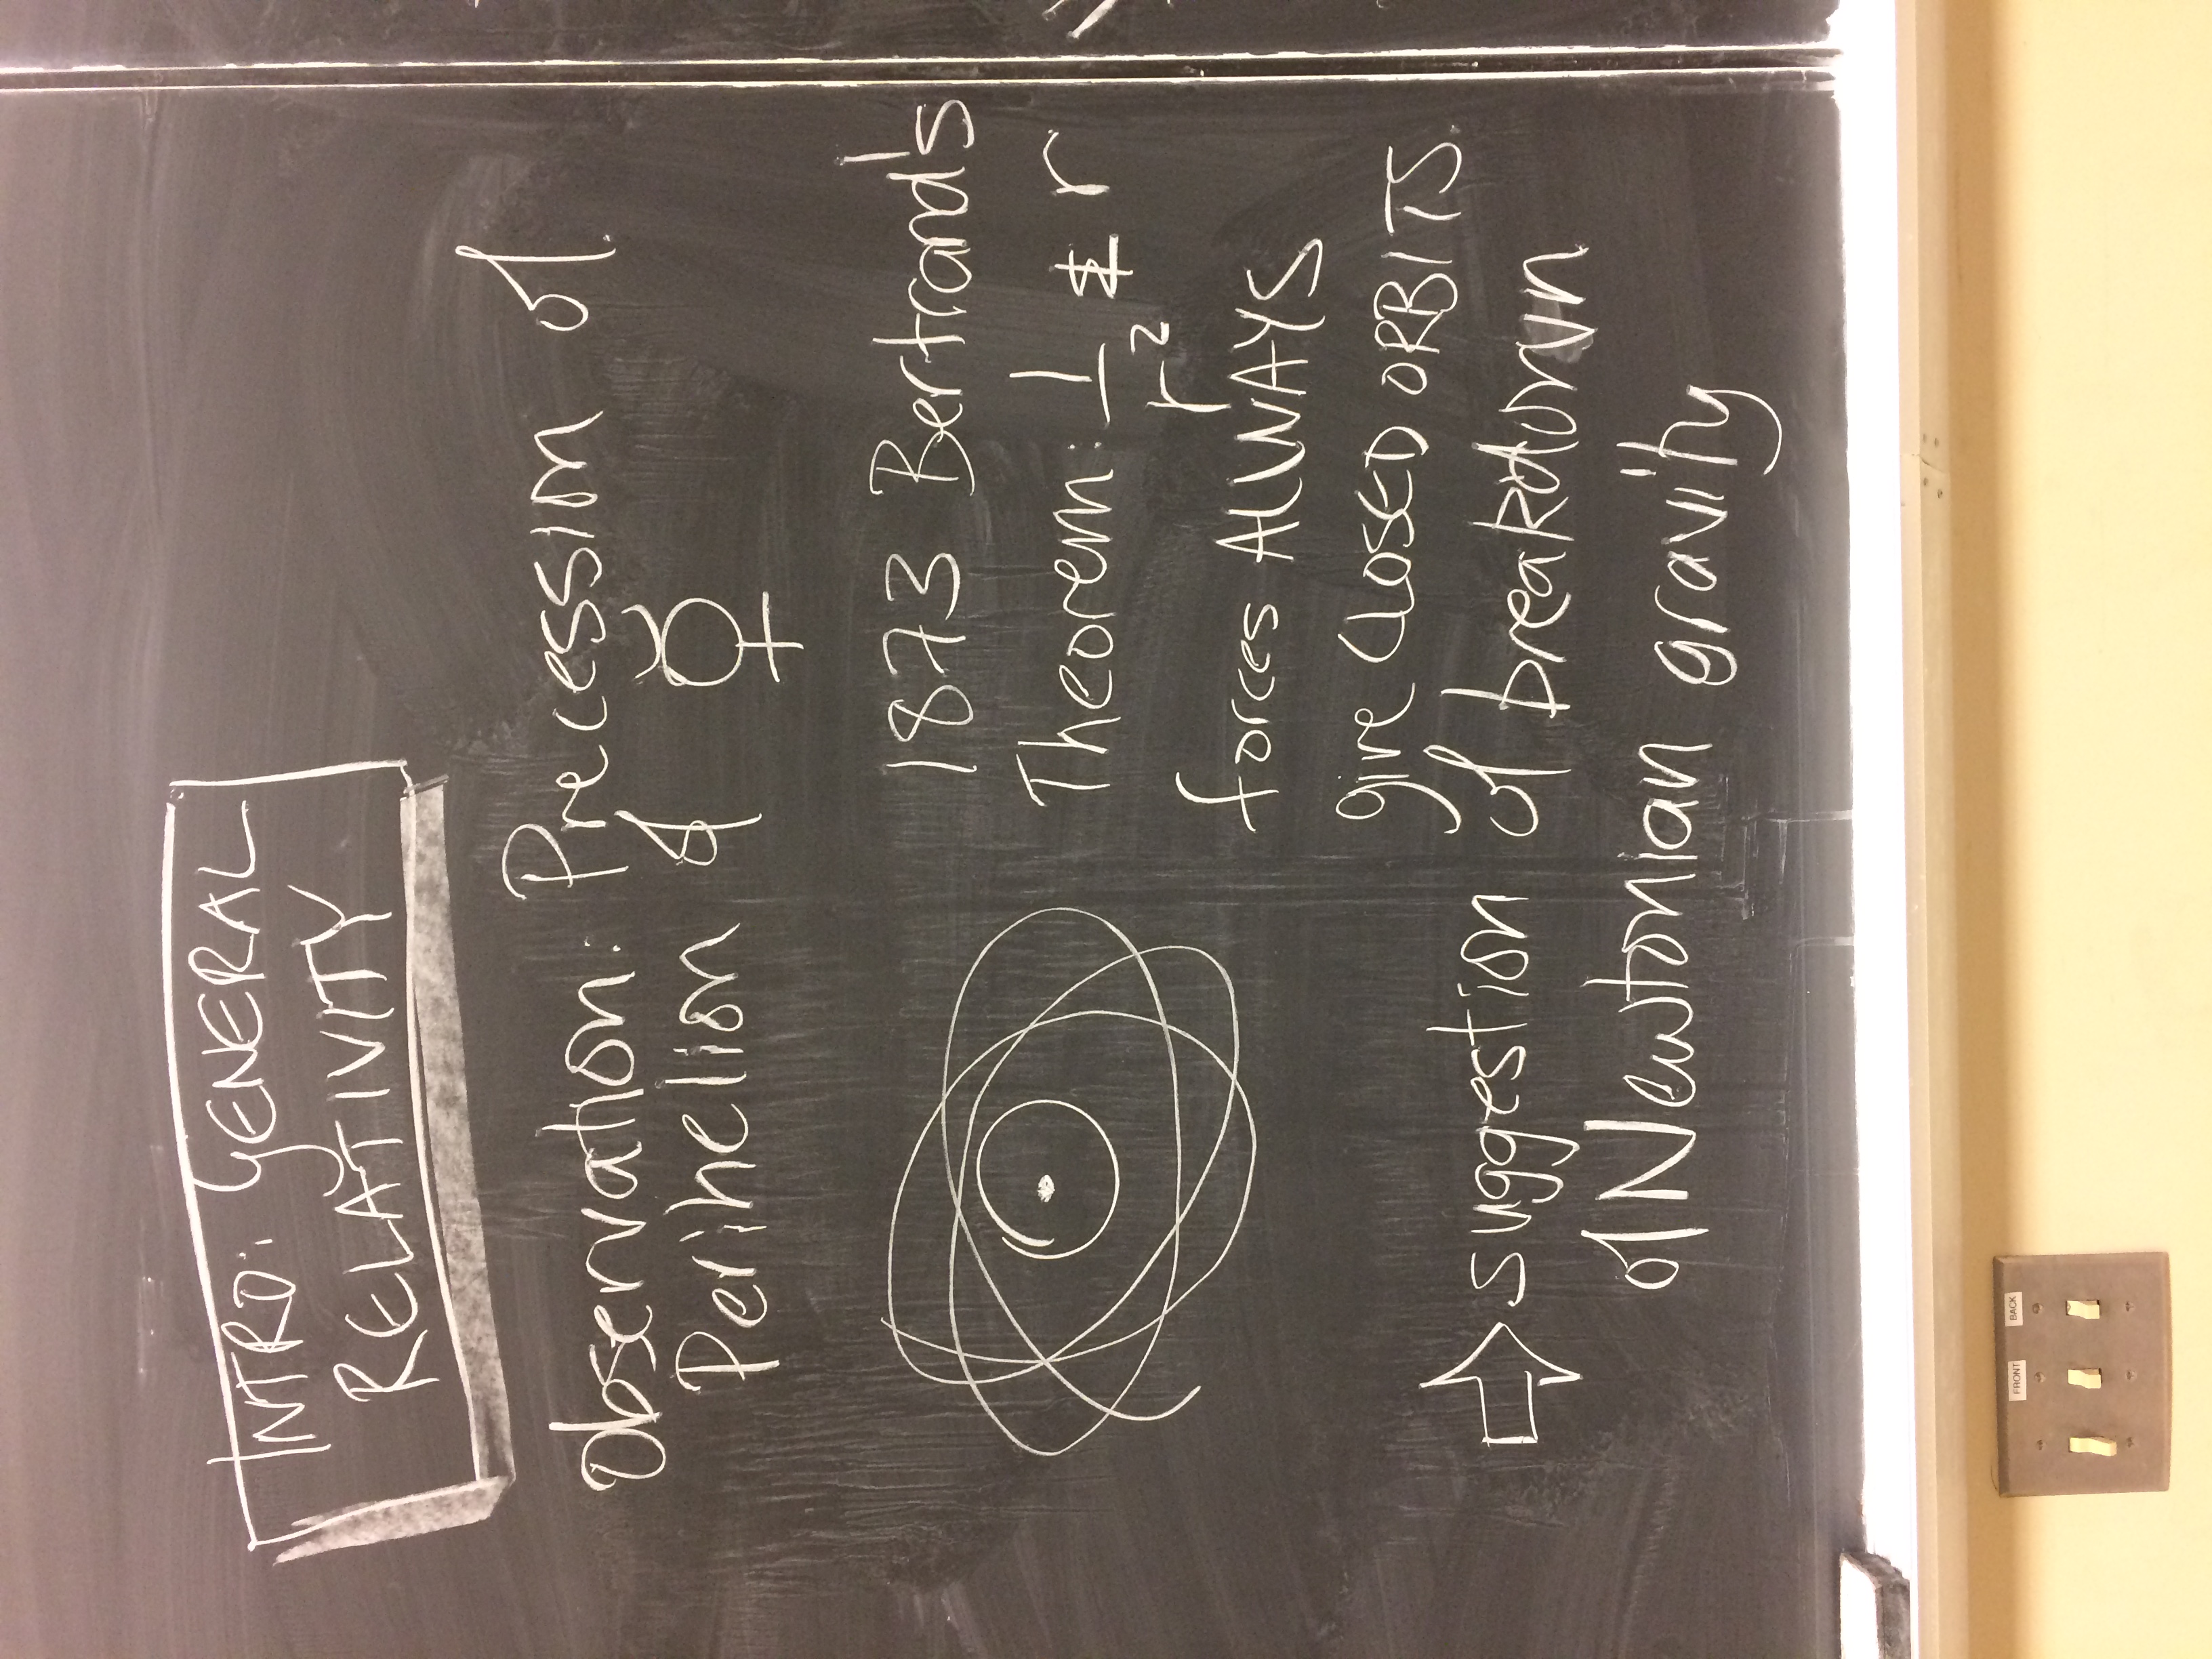 INTRO: GENERAL
RELATIVITY
Observation: Precession of
Perihelion of ☿
1873 Bertrand's
Theorem: 1/r² & r
forces ALWAYS
give CLOSED ORBITS.
⇒ suggestion of breakdown
of Newtonian gravity
FRONT BACK